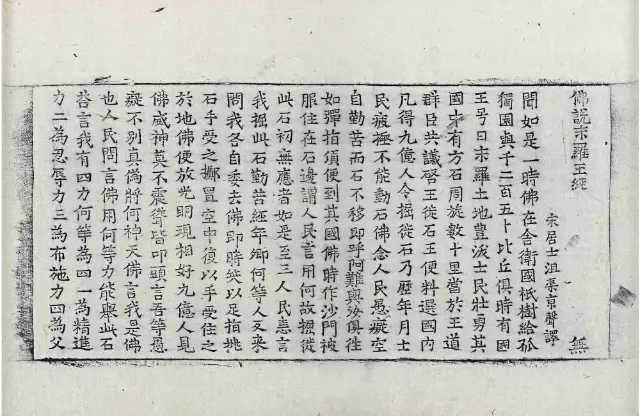 佛說末羅王經 無
宋居士沮渠京聲譯
聞如是一時佛在舍衛國祇樹給孤
獨園與千二百五十比丘俱時有國
王号曰末羅土地豐沃士民壯勇其
國中有方石周旋數十里當於王道
群臣共議啓王徙石王便料選國內
凡得九億人令掘徙石乃歷年月士
民疲極不能動石佛念人民愚癡空
自勤苦而石不移即呼阿難與汝俱往
如彈指須便到其國佛時作沙門被
服住在石邊謂人民言用何故掘徙
此石初無應者如是至三人民恚言
我掘此石勤苦經年卿何等人反來
問我各自委去佛即時笑以足指挑
石手受之擲置空中復以手受住之
於地佛便放光明現相好九億人見
佛威神莫不震聳皆叩頭言吾等愚
癡不別真偽將何神天佛言我是佛
也人民問言佛用何等力能舉此石
荅言我有四力何等為四一為精進
力二為忍辱力三為布施力四為父